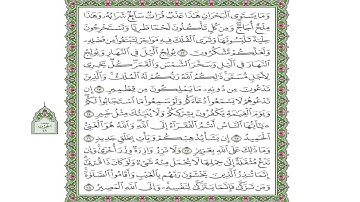 وَمَا يَسْتَوِى ٱلْبَحْرَانِ هَٰذَا عَذْبٌ فُرَاتٌ سَآئِغٌ شَرَابُهُۥ وَهَٰذَا
مِلْحٌ أُجَاجٌ وَمِن كُلٍّ تَأْكُلُونَ لَحْمًا طَرِيًّا وَتَسْتَخْرِجُونَ
حِلْيَةً تَلْبَسُونَهَا وَتَرَى ٱلْفُلْكَ فِيهِ مَوَاخِرَ لِتَبْتَغُوا۟ مِن فَضْلِهِۦ
وَلَعَلَّكُمْ تَشْكُرُونَ ۝ يُولِجُ ٱلَّيْلَ فِى ٱلنَّهَارِ وَيُولِجُ
ٱلنَّهَارَ فِى ٱلَّيْلِ وَسَخَّرَ ٱلشَّمْسَ وَٱلْقَمَرَ كُلٌّ يَجْرِى
لِأَجَلٍ مُّسَمًّى ذَٰلِكُمُ ٱللَّهُ رَبُّكُمْ لَهُ ٱلْمُلْكُ وَٱلَّذِينَ
تَدْعُونَ مِن دُونِهِۦ مَا يَمْلِكُونَ مِن قِطْمِيرٍ ۝ إِن
تَدْعُوهُمْ لَا يَسْمَعُوا۟ دُعَآءَكُمْ وَلَوْ سَمِعُوا۟ مَا ٱسْتَجَابُوا۟ لَكُمْ
وَيَوْمَ ٱلْقِيَٰمَةِ يَكْفُرُونَ بِشِرْكِكُمْ وَلَا يُنَبِّئُكَ مِثْلُ خَبِيرٍ ۝
يَٰٓأَيُّهَا ٱلنَّاسُ أَنتُمُ ٱلْفُقَرَآءُ إِلَى ٱللَّهِ وَٱللَّهُ هُوَ ٱلْغَنِىُّ
ٱلْحَمِيدُ ۝ إِن يَشَأْ يُذْهِبْكُمْ وَيَأْتِ بِخَلْقٍ جَدِيدٍ ۝
وَمَا ذَٰلِكَ عَلَى ٱللَّهِ بِعَزِيزٍ ۝ وَلَا تَزِرُ وَازِرَةٌ وِزْرَ أُخْرَىٰ وَإِن
تَدْعُ مُثْقَلَةٌ إِلَىٰ حِمْلِهَا لَا يُحْمَلْ مِنْهُ شَىْءٌ وَلَوْ كَانَ ذَا قُرْبَىٰٓ
إِنَّمَا تُنذِرُ ٱلَّذِينَ يَخْشَوْنَ رَبَّهُم بِٱلْغَيْبِ وَأَقَامُوا۟ ٱلصَّلَوٰةَ
وَمَن تَزَكَّىٰ فَإِنَّمَا يَتَزَكَّىٰ لِنَفْسِهِۦ وَإِلَى ٱللَّهِ ٱلْمَصِيرُ ۝